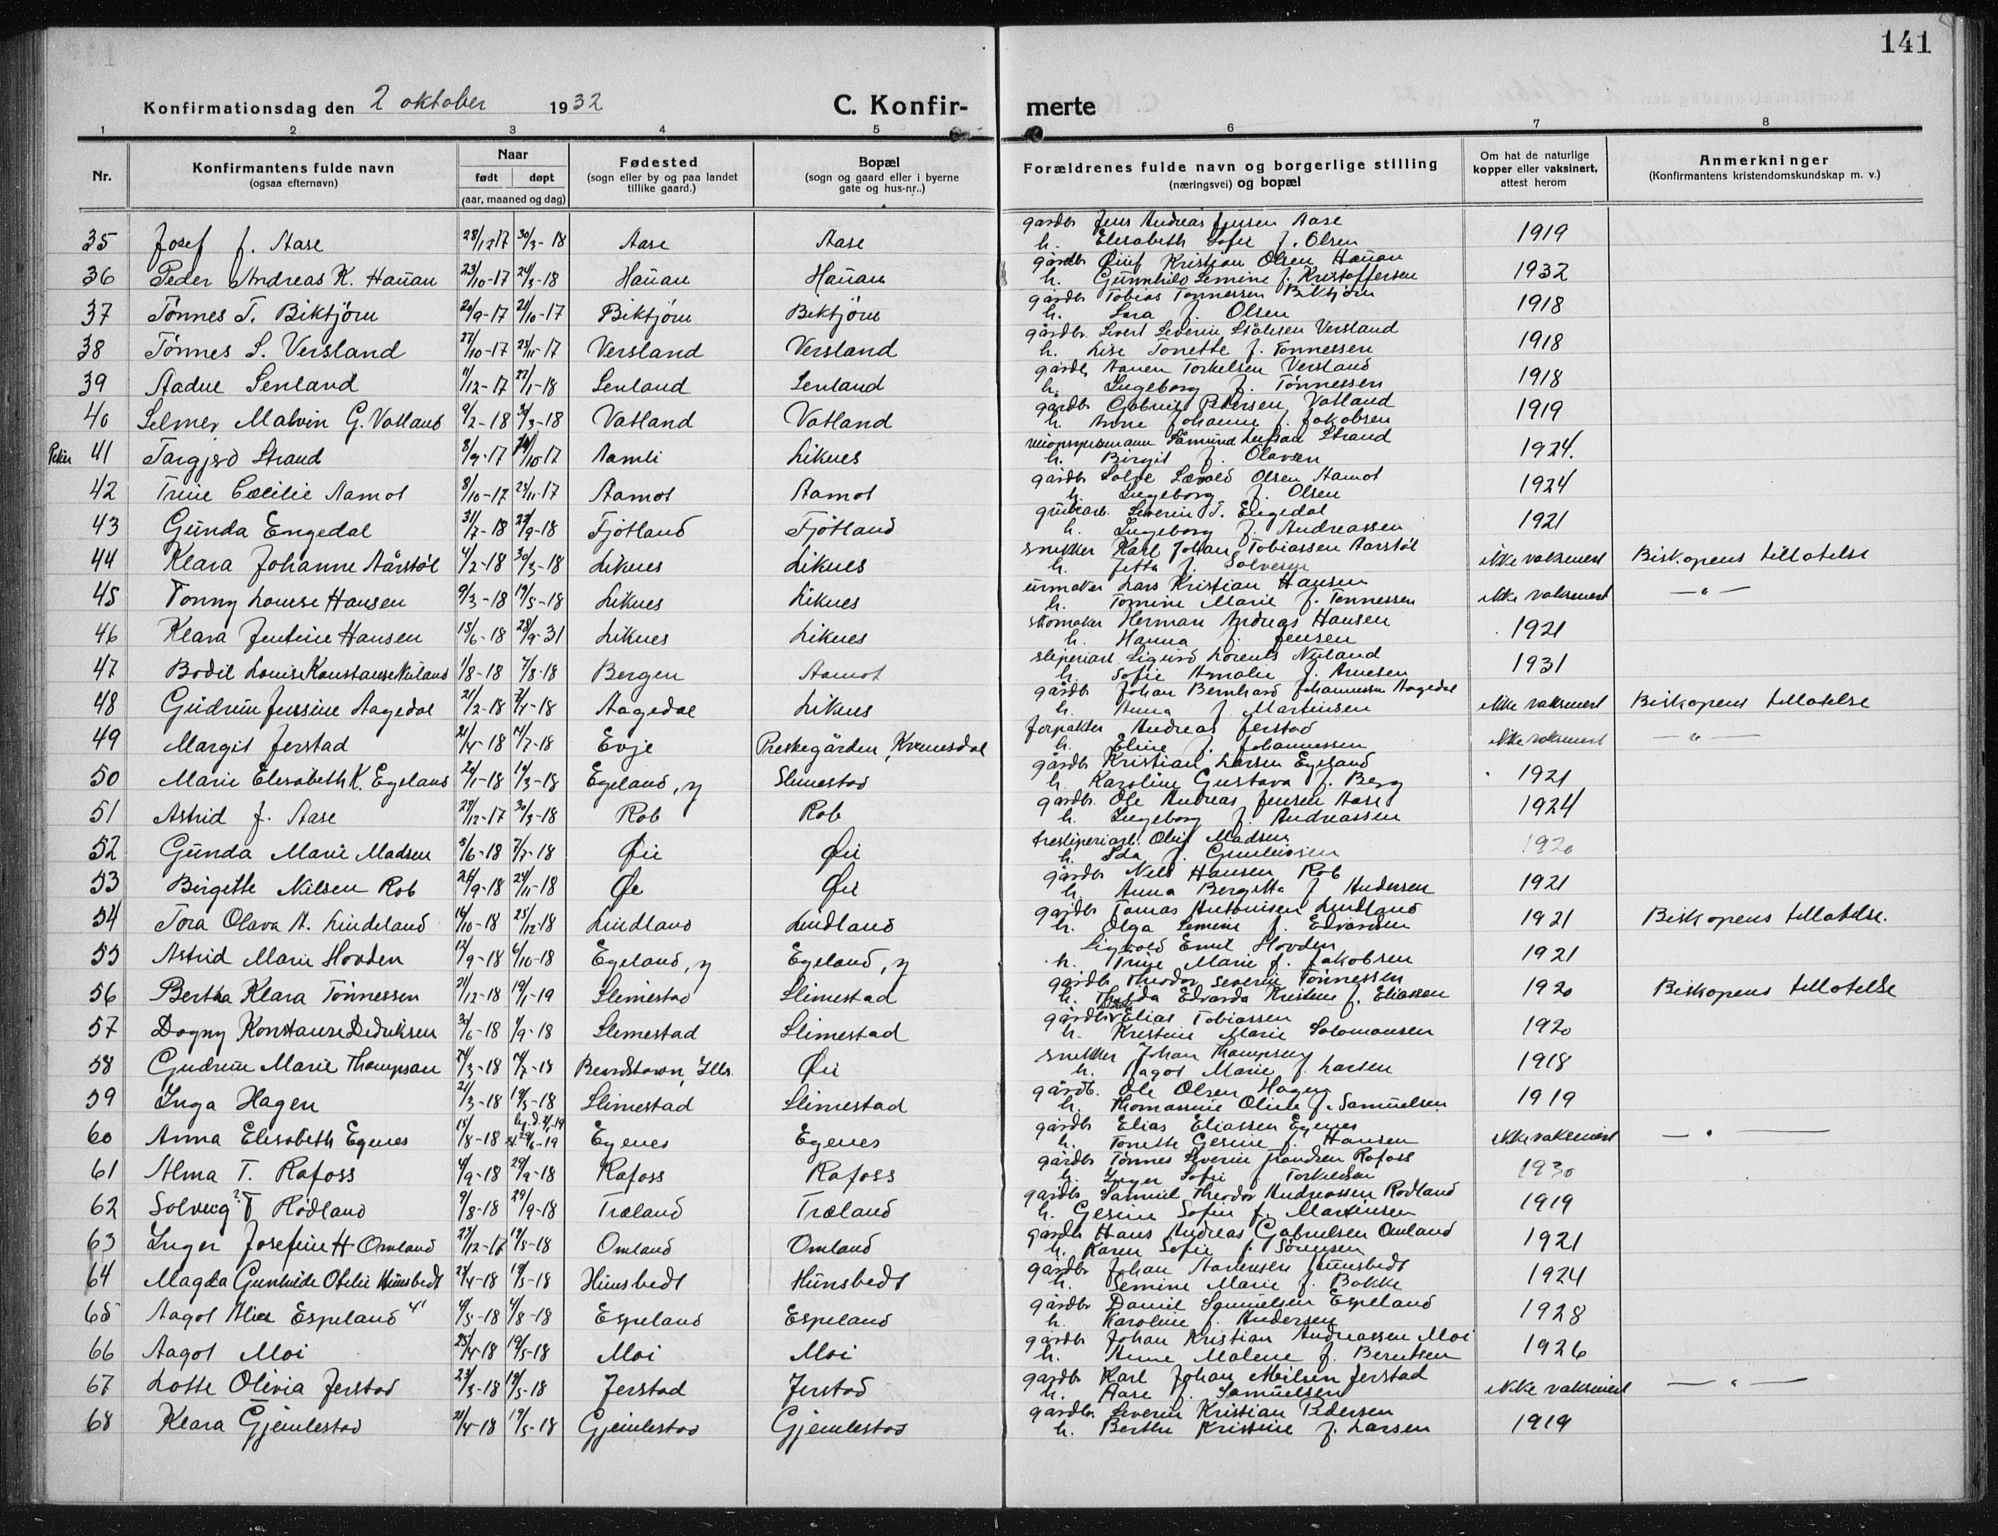 141
Konfirmationsdag den 2 oktober 1932
C. Konfirmerte
1 2 3 4 5 6 7 8
Nr.
Konfirmantens fulde navn (ogsaa efternavn)
Naar født døpt (aar, maaned og dag)
Fødested (sogn eller by og paa landet tillike gaard.)
Bopæl (sogn og gaard eller i byerne gate og hus-nr..)
Forældrenes fulde navn og borgerlige stilling (næringsvei) og bopæl
Om hat de naturlige kopper eller vaksinert, attest herom
Anmerkninger (Konfirmantens kristendomskundskap m. v.)
35 Josef J. Aase 28/12 17 30/3-18 Aase Aase gårdbr Jens Andreas Jensen Aase 1919
h. Elisabeth Sofie f. Olsen
36 Peder Andreas K. Hauan 23/10-17 24/3-18 Hauan Hauan gårdbr Oluf Kristian Olsen Hauan 1932
h. Gunnhild Semine f. Kristoffersen
37 Tønnes T. Biktjørn 20/9-17 21/10-17 Biktjørn Biktjørn gårdbr Tobias Tønnessen Biktjørn 1918
h. Sara f. Olsen
38 Tønnes S. Versland 27/10-17 25/11-17 Versland Versland gårdbr. Sivert Severin Ståhsen Versland 1918
h. Lise Tonette f. Tønnessen
39 Aadne Senland 11/12-17 27/1-18 Senland Senland gårdb. Aanen Torkelsen Versland 1918
h. Ingeborg f. Tønnessen
40 Selmer Malvin G. Vatland 9/2-18 30/3-18 Vatland Vatland gårdbr Gabriel Pedersen Vatland 1919
h. Anne Johanne f. Jakobsen
41 Targjerd Strand 8/9-17 /10-17 Aamli Liknes Såmund Strand 1924.
h. Birgit f. Olavsen
42 Trine Cecilie Aamot 8/10-17 25/11-17 Aamot Aamot gårdbr Salve Olsen Aamot 1924
h. Ingeborg f. Olsen
43 Gunda Engedal 31/7-18 22/9-18 Fjotland Fjotland grubearb. Severin T. Engedal 1921
h. Ingeborg f Andreassen
44 Klara Johanne Aårstøl 4/2-18 30/3-18 Liknes Liknes snekker Karl Johan Tobiassen Aarstøl ikke vaksinert Biskopens tillatelse
h. Jetta f. Solvesen
45 Tonny Louise Hansen 9/3-18 19/5-18 Liknes Liknes urmaker Lars Kristian Hansen ikke vaksinert —"—
h. Tomine Marie f. Tønnessen
46 Klara Jentine Hansen 15/6-18 28/9-31 Liknes Liknes skomaker Herman Andreas Hansen 1921
h. Hanna f. Jensen
47 Bodil Louise Konstanse Nuland 1/8-18 7/8-18 Bergen Aamot sliperiarb Sigurd Lorents Nuland 1931
h. Sofie Amalie f. Arnesen
48 Gudrun Jensine Aagedal 21/2-18 7/4-18 Aagedal Liknes gårdbr Johan Bernhard Johannesen Aagedal ikke vaksinert Biskopens tillatelse
h. Anna f Martinsen
49 Margit Jerstad 21/4-18 14/7-18 Evje Prestegården, Kvinesdal forpakter Andreas Jerstad ikke vaksinert —"—
h. Eline f. Johannessen
50 Marie Elisabeth K. Egeland 24/1-18 10/3-18 Egeland, y Slimestad gårdbr Kristian Larsen Egeland 1921
h. Karoline Gustava f. Berg
51 Astrid J. Aase 29/12-17 30/3-18 Rob Rob gårdbr. Ole Andreas Jensen Aase 1924
h. Ingeborg f. Andreassen
52 Gunda Marie Madsen 5/6-18 7/7-18 Øie Øie tresliperiarb. Oluf Madsen 1920
h. Ida f.
53 Birgitte Nilsen Rob 26/9-18 24/11-18 Øie Øie gårdbr Nils Hansen Rob 1921
h. Anna Bergitta f Andersen
54 Tora Olava A. Lindeland 14/10-18 25/12-18 Lindland Lindland gårdbr Tomas Antonisen Lindland 1921 Biskopens tillatelse.
h. Olga Semine f. Edvardsen
55 Astrid Marie Hovden 12/9-18 6/10-18 Egeland, y Egeland, y Sigvald Emil Hovden 1921
h. Trine Marie f. Jakobsen
56 Bertha Klara Tønnessen 21/12-18 19/1-19 Slimestad Slimestad gårdbr Theodor Severin Tønnessen 1920 Biskopens tillatelse
h. Edvarda Kristine f. Eliassen
57 Dagny Konstanse Didriksen 30/6-18 1/9-18 Slimestad Slimestad gårdbr Elias Tobiassen 1920
h. Kristine Marie Salomonsen
58 Gudrun Marie Thompson 24/3-18 14/7-18 Beardstown, Ills. Øie snekker Johan Thompson 1918
h. Aagot Marie f. Larsen
59 Inga Hagen 21/3-18 19/5-18 Slimestad Slimestad gårdb. Ole Olsen Hagen 1919
h. Thomassine Oline f. Samuelsen
60 Anna Elisabeth Egenes 15/8-18 29/6-19 Egenes Egenes gårdbr Elias Eliassen Egenes ikke vaksinert —"—
h. Tonette Gesine f. Hansen
61 Alma T. Rafoss 4/9-18 29/9-18 Rafoss Rafoss gårdbr Tønnes Severin Trondsen Rafoss 1930
h. Inger Sofie f Torkildsen
62 Solveig T Rødland 9/8-18 29/9-18 Træland Træland gårdbr Samuel Theodor Andreassen Rødland 1919
h. Gesine Sofie f. Martinsen
63 Inger Josefine H Omland 25/12-17 19/5-18 Omland Omland gårdbr Hans Andreas Gabrielsen Omland 1921
h. Karen Sofie f. Sørensen
64 Magda Gunhilde Otelie Hunsbedt 24/4-18 19/5-18 Hunsbedt Hunsbedt gårdbr Johan Aanensen Hunsbedt 1924
h. Semine Marie f. Bakke
65 Aagot Alice Espeland 4/5-18 4/8-18 Espeland Espeland gårdbr Daniel Samuelsen Espeland 1928
h. Karoline f. Andersen
66 Aagot Moi 25/4-18 19/5-18 Moi Moi gårdbr Johan Kristian Andreassen Moi 1926
h. Anne Malene f. Berntsen
67 Lotte Olivia Jerstad 23/3-18 19/5-18 Jerstad Jerstad gårdbr Karl Johan Jerstad ikke vaksinert —"—
h. Aase f. Samuelsen
68 Klara Gjemlestad 21/4-18 19/5-18 Gjemlestad Gjemlestad gårdbr Severin Kristian Pedersen 1919
h. Berthe Kristine f. Larsen